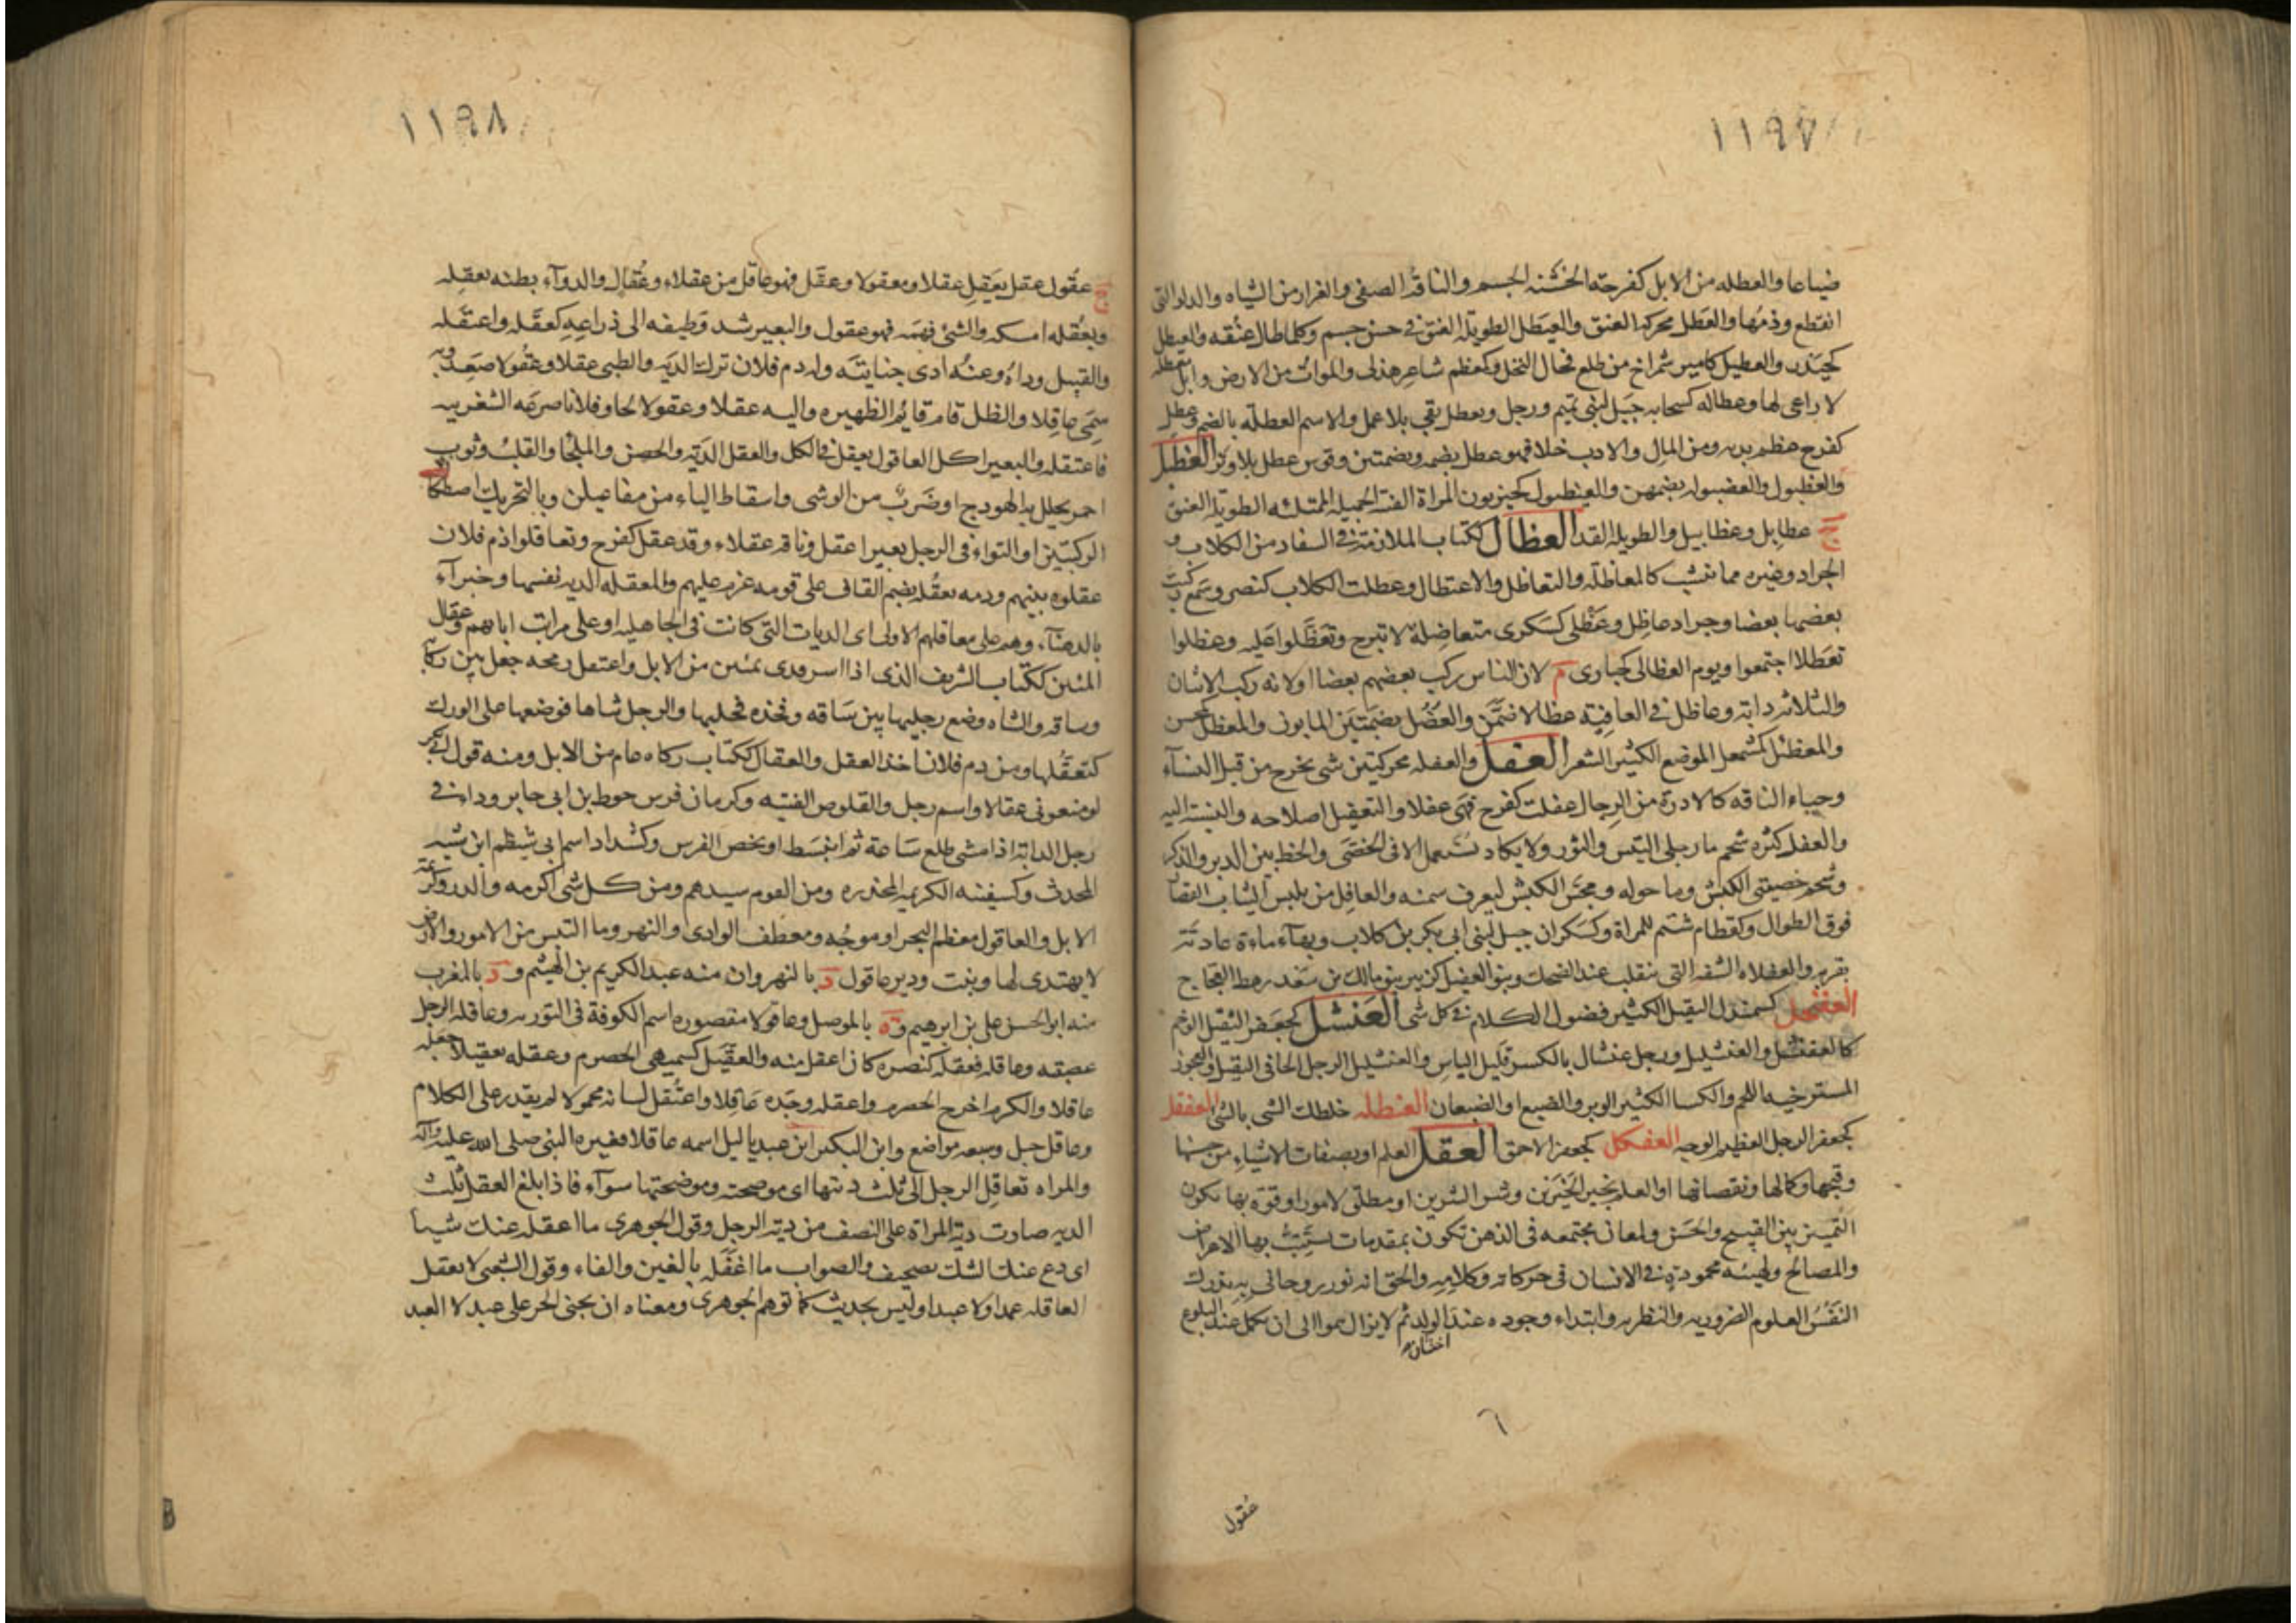 ١١٩٧
ضياعا والعطله من الابل كفرحة الحسنة الجسم والناقة الصفى والغزار من الشياه والدلو التى
انقطع وذمها والعطل محركة العنق والعيطل الطويلة العنق فى حسن جسم وكلما طال عنقه والعيطل
كحيدر والعطيل كامير شمراخ من طلع فحال النخل وكمعظم شاعر هذلى والموات من الارض وابل معطله
لا راعى لها وعطاله كسحابه جبل لبنى تميم ورجل وتعطل بقى بلا عمل والاسم العطلة بالضم وعطل
كفرح عظم بدنه ومن المال والادب خلا فهو عطل بضمه وبضمتين وقوس عطل بلا وتر العطبل
والعطبول بضمهن والعيطبول كحيزبون المراة الفتية الجميله الممتلئه الطويلة العنق
ج عطابل وعطابيل والطويلة القد العظال ككتاب الملازمة فى السفاد من الكلاب و
الجراد وغيره مما ينشب كالمعاظلة والتعاظل والاعتظال وعظلت الكلاب كنصر وسمع ركبت
بعضها بعضا وجراد عاظل وعظلى كسكرى متعاظلة لا تبرح وتعظلوا عليه وعظلوا
تعظلا اجتمعوا ويوم العظالى كحبارى م لان الناس ركب بعضهم بعضا اولانه ركب الاثنان
والثلاثه دابة وعاظل فى القافية عظالا ضمن والعظل بضمتين المابونون والمعظل كمحسن
والمعظئل كمشمعل الموضع الكثير الشجر العفل والعفله محركتين شى يخرج من قبل النسآء
وحياء الناقه كالادرة من الرجال عفلت كفرح فهى عفلاء والتعفيل اصلاحه والنسبة اليه
والعفل كثره شحم ما بين رجلى التيس والثور ولا يكاد يستعمل الا فى الخصى والخط بين الدبر والذكر
وشحم خصيتى الكبش وما حوله ومجس الكبش ليعرف سمنه والعافل من يلبس الثياب القصار
فوق الطوال وكقطام شتم للمراة وكسكران جبل لبنى ابى بكر بن كلاب وبهاء ماءة عادية
بقربه والعفلاء الشفه التى تنقلب عند الضحك وبنو العفيل كزبير بنو مالك بن سعد رهط العجاج
العفنجل كسمندل الثقيل الكثير فضول الكلام فى كل شى العفشل كجعفر الثقيل الوخم
كالعفنشل والعفشليل ورجل عفشال بالكسر قليل الباس والعفشليل الرجل الجافى الثقيل والعجوز
المسترخيه اللحم والكسا الكثير الوبر والضبع او الضبعان العفطله خلطك الشى بالشى العفقل
كجعفر الرجل العظيم الوجه العفكل كجعفر الاحمق العقل العلم او بصفات الاشياء من حسنها
وقبحها وكمالها ونقصانها او العلم بخير الخيرين وشر الشرين او مطلق لامور او قوة بها يكون
التميز بين القبيح والحسن ولمعان مجتمعه فى الذهن تكون بمقدمات يستتب بها الاعراض
والمصالح ولهيئه محمودة فى الانسان فى حركاته وكلامه والحق انه نور روحانى به تدرك
النفس العلوم الضروريه والنظريه وابتداء وجوده عند اجتنان الولد ثم لا يزال ينمو الى ان يكمل عند البلوغ
٦
عقول
١١٩٨
ج عقول عقل يعقل عقلا ومعقولا وعقل فهو عاقل من عقلاء وعقال والدوآء بطنه يعقله
ويعقله امسكه والشئ فهمه فهو عقول والبعير شد وظيفه الى ذراعه كعقله واعتقله
والقتيل وداه وعنه ادى جنايته وله دم فلان ترك الديه والظبى عقلا وعقولا صعد وبه
سمى عاقلا والظل قام قايم الظهيره واليه عقلا وعقولا لجا وفلانا صرعه الشغربيه
فاعتقله والبعير اكل العاقول يعقل فى الكل والعقل الدية والحصن والملجا والقلب وثوب
احمر يجلل به الهودج او ضرب من الوشى واسقاط الياء من مفاعيلن وبالتحريك اصطكاك
الركبتين او التواء فى الرجل بعير اعقل وناقه عقلاء وقد عقل كفرح وتعاقلوا دم فلان
عقلوه بينهم ودمه معقله بضم القاف على قومه غرم عليهم والمعقله الديه نفسها وخبرآء
بالدهنآء وهم على معاقلهم الاولى اى الديات التى كانت فى الجاهليه او على مراتب ابائهم وعقال
المئين ككتاب الشريف الذى اذا اسر فدى بمئين من الابل واعتقل رمحه جعل بين ركابه
وساقه والشاه وضع رجليها بين ساقه وفخذه فحلبها والرجل ثناها فوضعها على الورك
كتعقلها ومن دم فلان اخذ العقل والعقال ككتاب زكاه عام من الابل ومنه قول ابى بكر
لو منعونى عقالا واسم رجل والقلوص الفتيه وكرمان فرس حوط بن ابى جابر وداء فى
رجل الدابة اذا مشى ظلع ساعة ثم انبسط او يخص الفرس وكشداد اسم ابى شيظم ابن شبه
المحدث وكسفينه الكريمه المخدره ومن القوم سيدهم ومن كل شى اكرمه والدر وكريمة
الابل والعاقول معظم البحر او موجه ومعطف الوادى والنهر وما التبس من الامور والارض
لا يهتدى لها ونبت ودير عاقول د بالنهروان منه عبد الكريم بن الهيثم ود بالمغرب
منه ابو الحسن على بن ابرهيم وة بالموصل وعاقولا مقصوره اسم الكوفة فى التوريه وعاقله الرجل
عصبته وعاقله فعقله كنصره كان اعقل منه والعقيل كسميهى الحصرم وعقله تعقيلا جعله
عاقلا والكرم اخرج الحصرم واعقله وجده عاقلا واعتقل لسانه مجهولا لم يقدر على الكلام
وعاقل جبل وسبعه مواضع وابن البكير ابن عبد ياليل اسمه عاقلا فغيره النبى صلى الله عليه وآله
والمراه تعاقل الرجل الى ثلث ديتها اى موضحته وموضحتها سوآء فاذا بلغ العقل ثلث
الديه صارت دية المراة على النصف من دية الرجل وقول الجوهرى ما اعقله عنك شيأ
اى دع عنك الشك تصحيف والصواب ما اغفله بالغين والفاء وقول الشعبى لا تعقل
العاقله عمدا ولا عبدا وليس بحديث كما توهم الجوهرى ومعناه ان يجنى الحر على عبد لا العبد